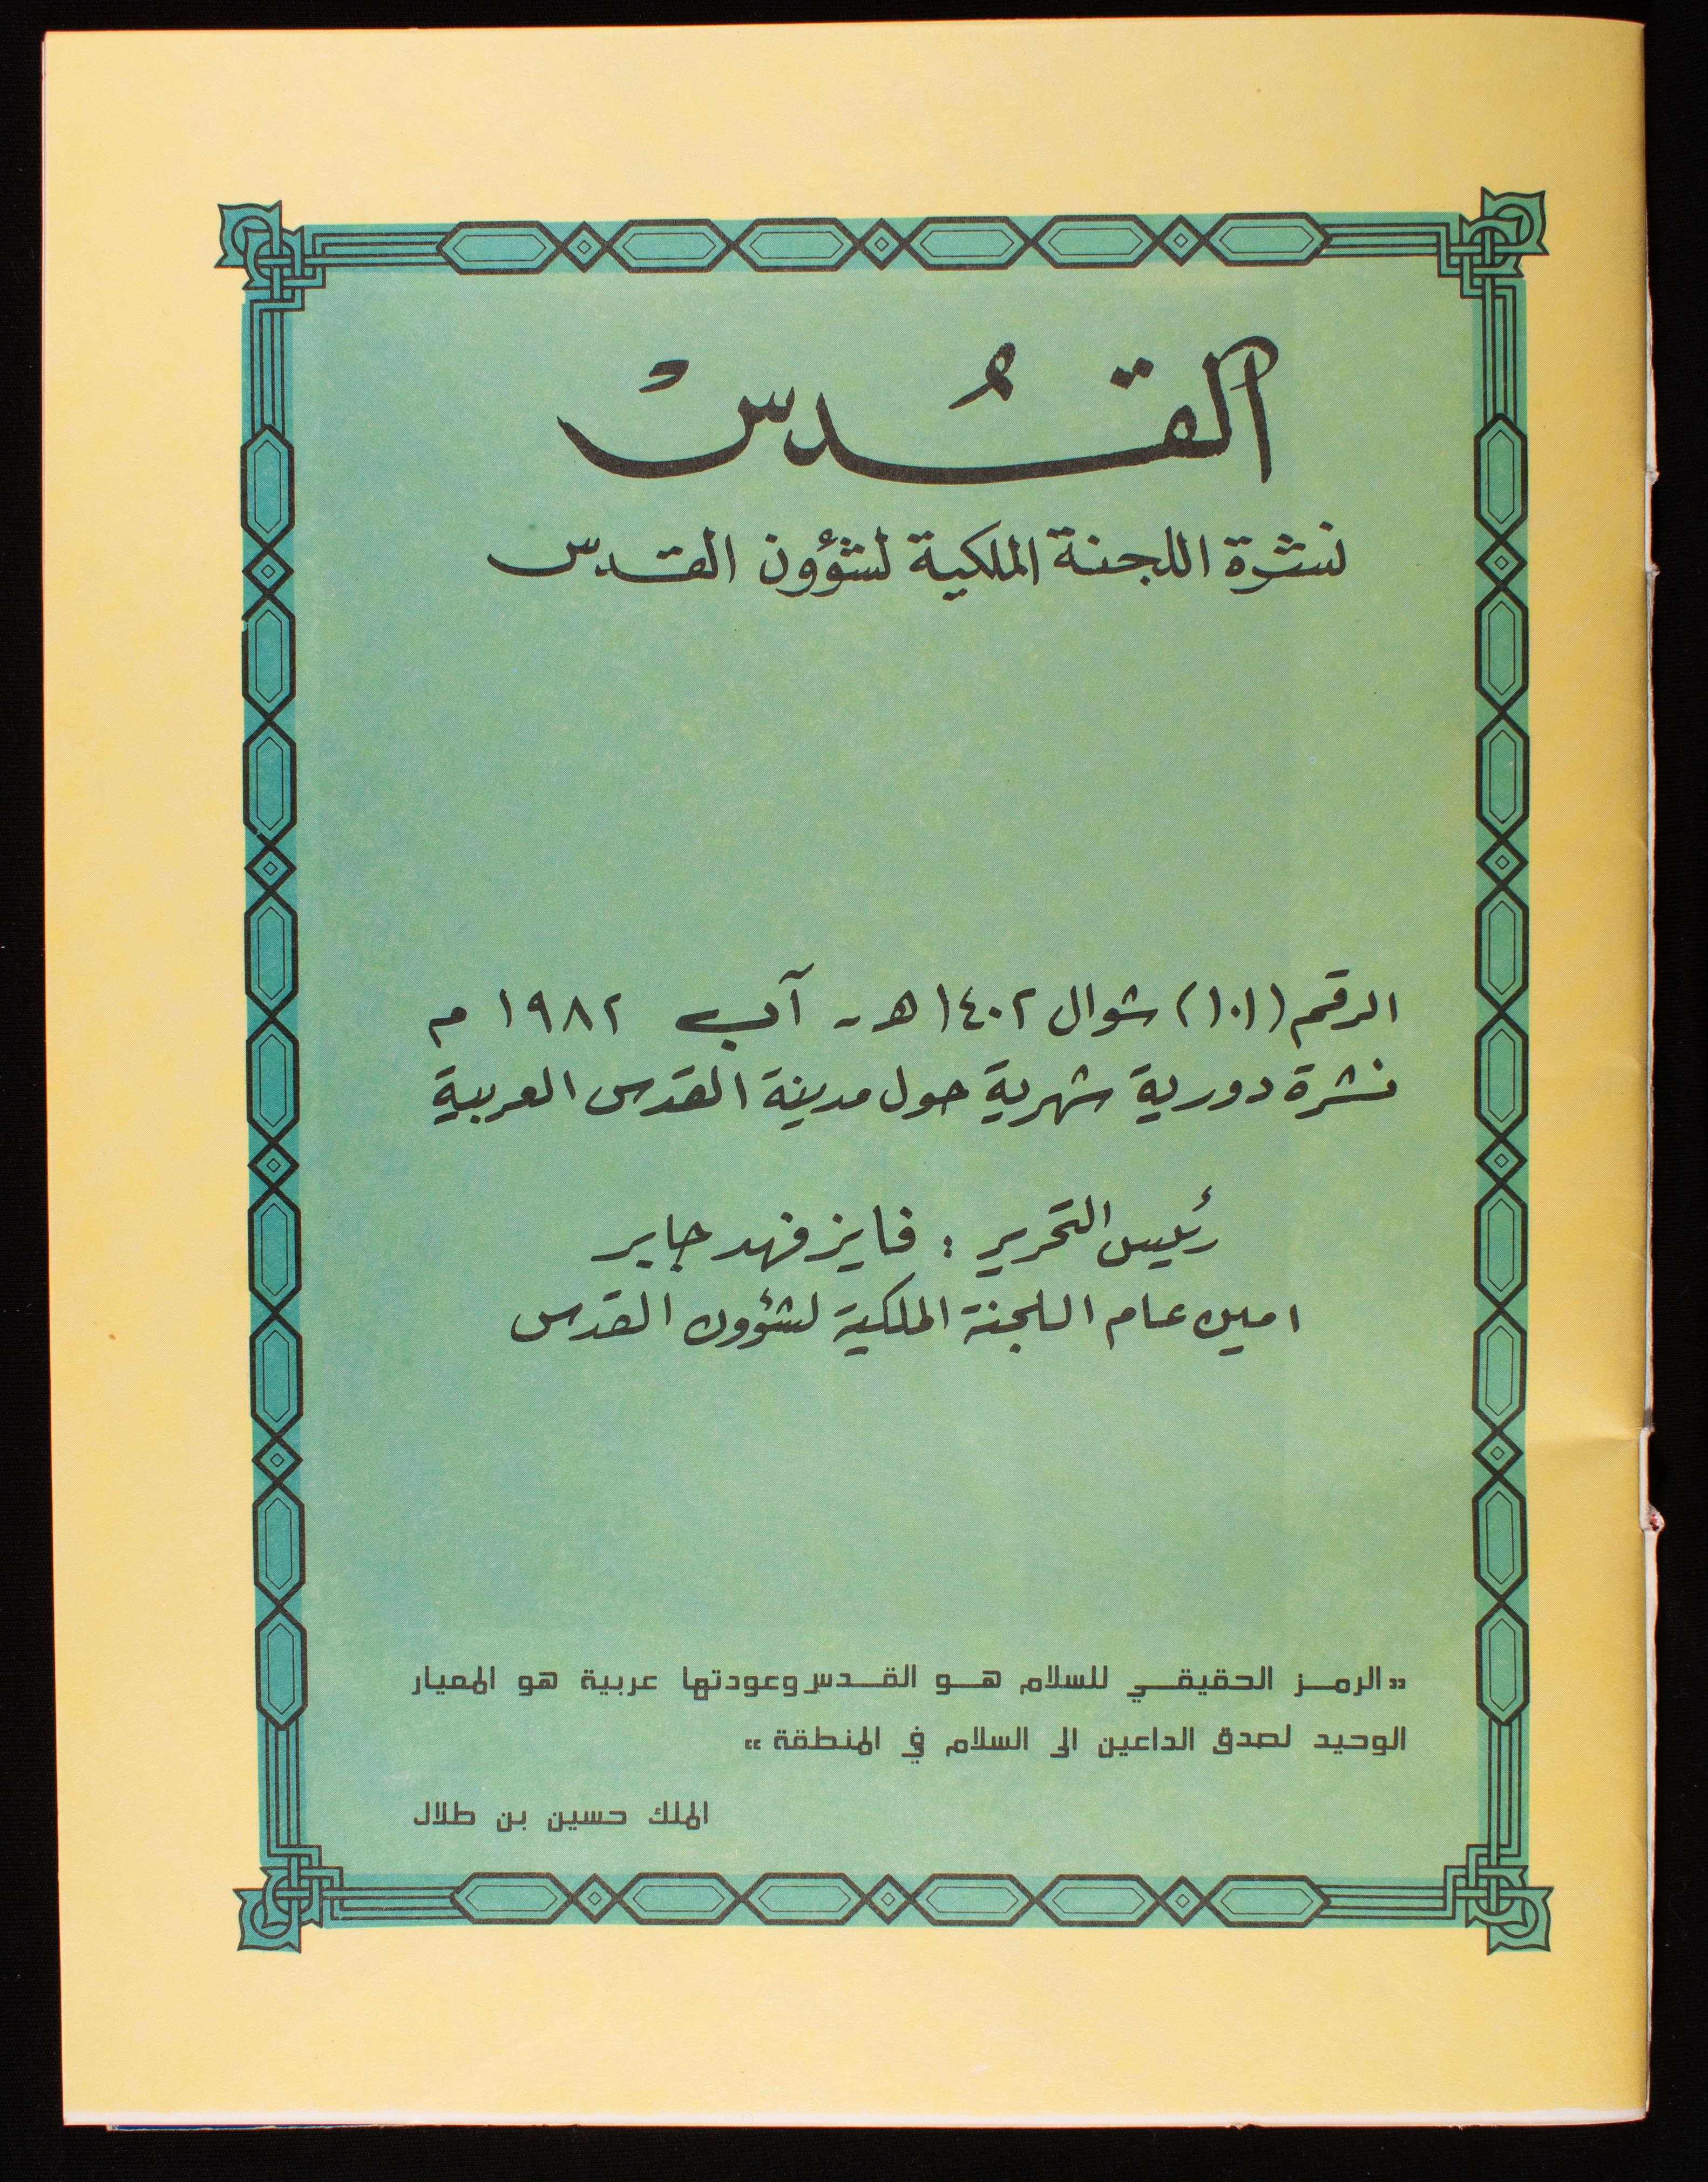 القُدسْ
نشرة اللجنة الملكية لشؤون القدس
الرقم (١٠١) شوال ١٤٠٢ هـ - آب ١٩٨٢ م
نشرة دورية شهرية حول مدينة القدس العربية
رئيس التحرير : فايز فهد جابر
امين عام اللجنة الملكية لشؤون القدس
«الرمز الحقيقي للسلام هو القدس وعودتها عربية هو المعيار
الوحيد لصدق الداعين الى السلام في المنطقة»
الملك حسين بن طلال